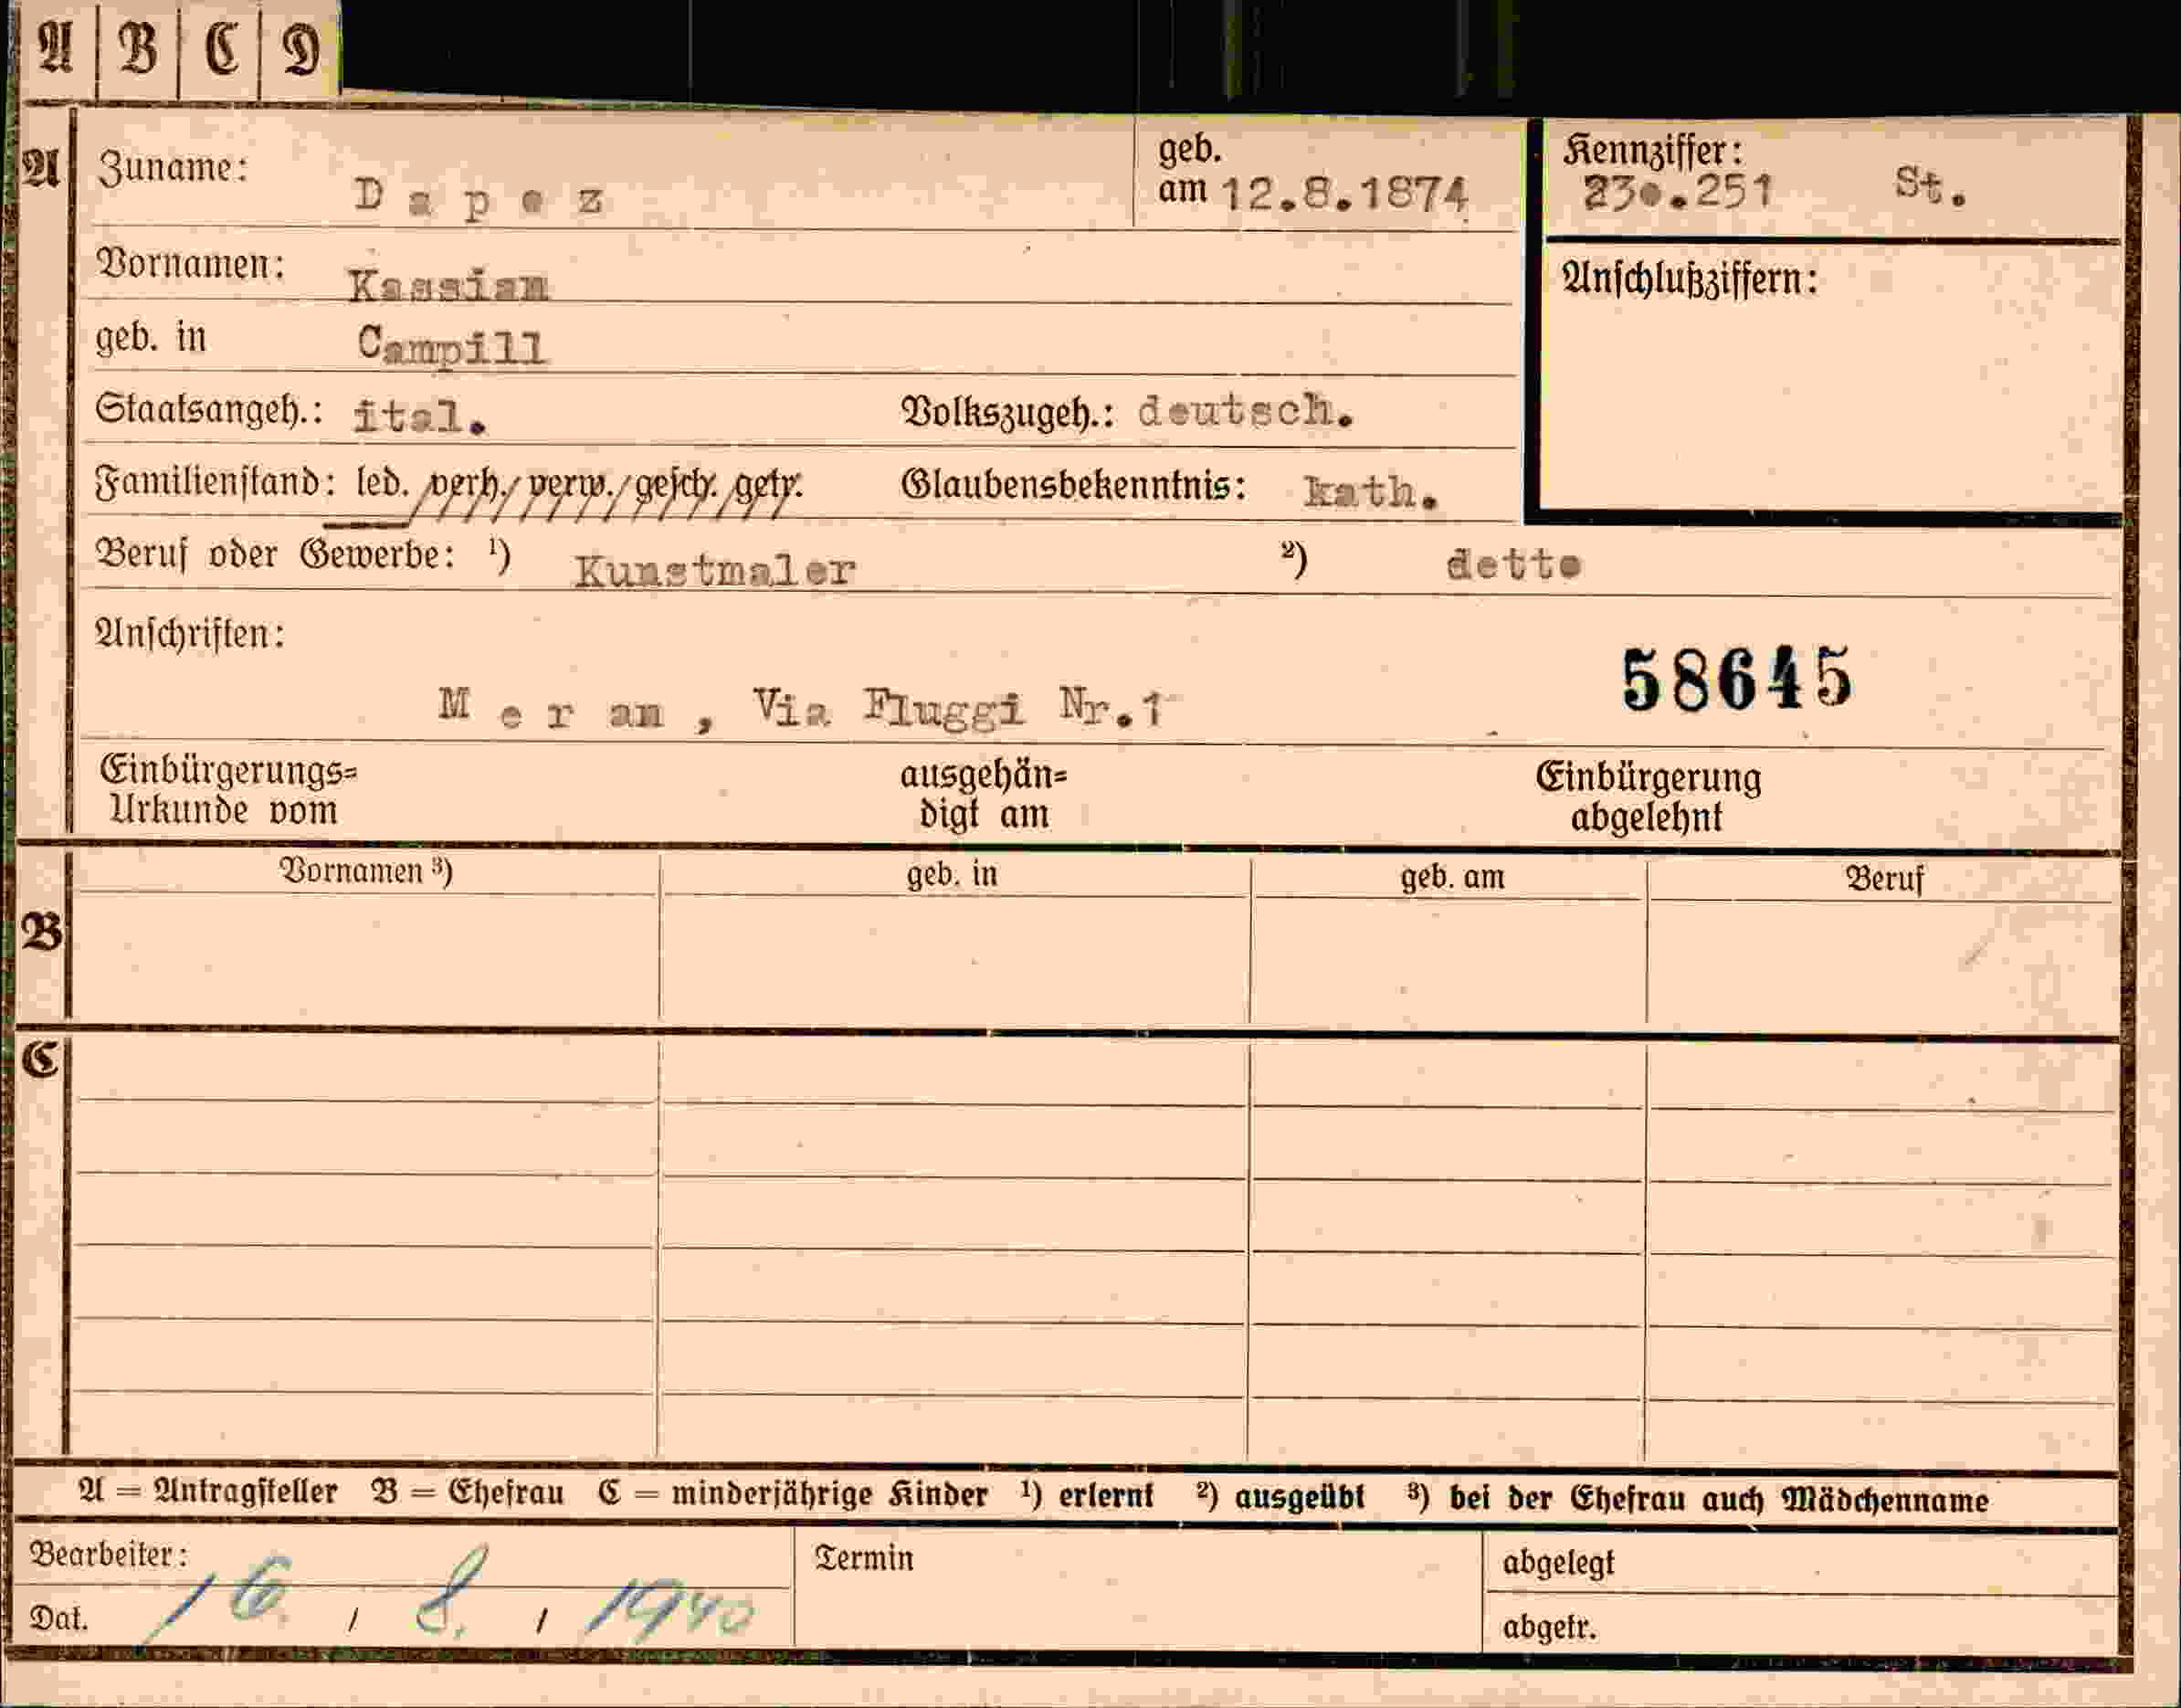 A | B | C | D
A Zuname: Dapoz geb. am 12.8.1874 Kennziffer: 230.251 St.
Vornamen: Kassian Anschlußziffern:
geb. in Campill
Staatsangeh.: ital. Volkszugeh.: deutsch.
Familienstand: led. verh./ verw./ gesch. getr. Glaubensbekenntnis: kath.
Beruf oder Gewerbe: ¹) Kunstmaler ²) detto
Anschriften: 58645
Meran, Via Fluggi Nr.1
Einbürgerungs= ausgehän= Einbürgerung
Urkunde vom digt am abgelehnt
Vornamen ³) geb. in geb. am Beruf
B
C
A = Antragsteller B = Ehefrau C = minderjährige Kinder ¹) erlernt ²) ausgeübt ³) bei der Ehefrau auch Mädchenname
Bearbeiter: Termin abgelegt
Dat. 16. / 8. / 1940 abgetr.